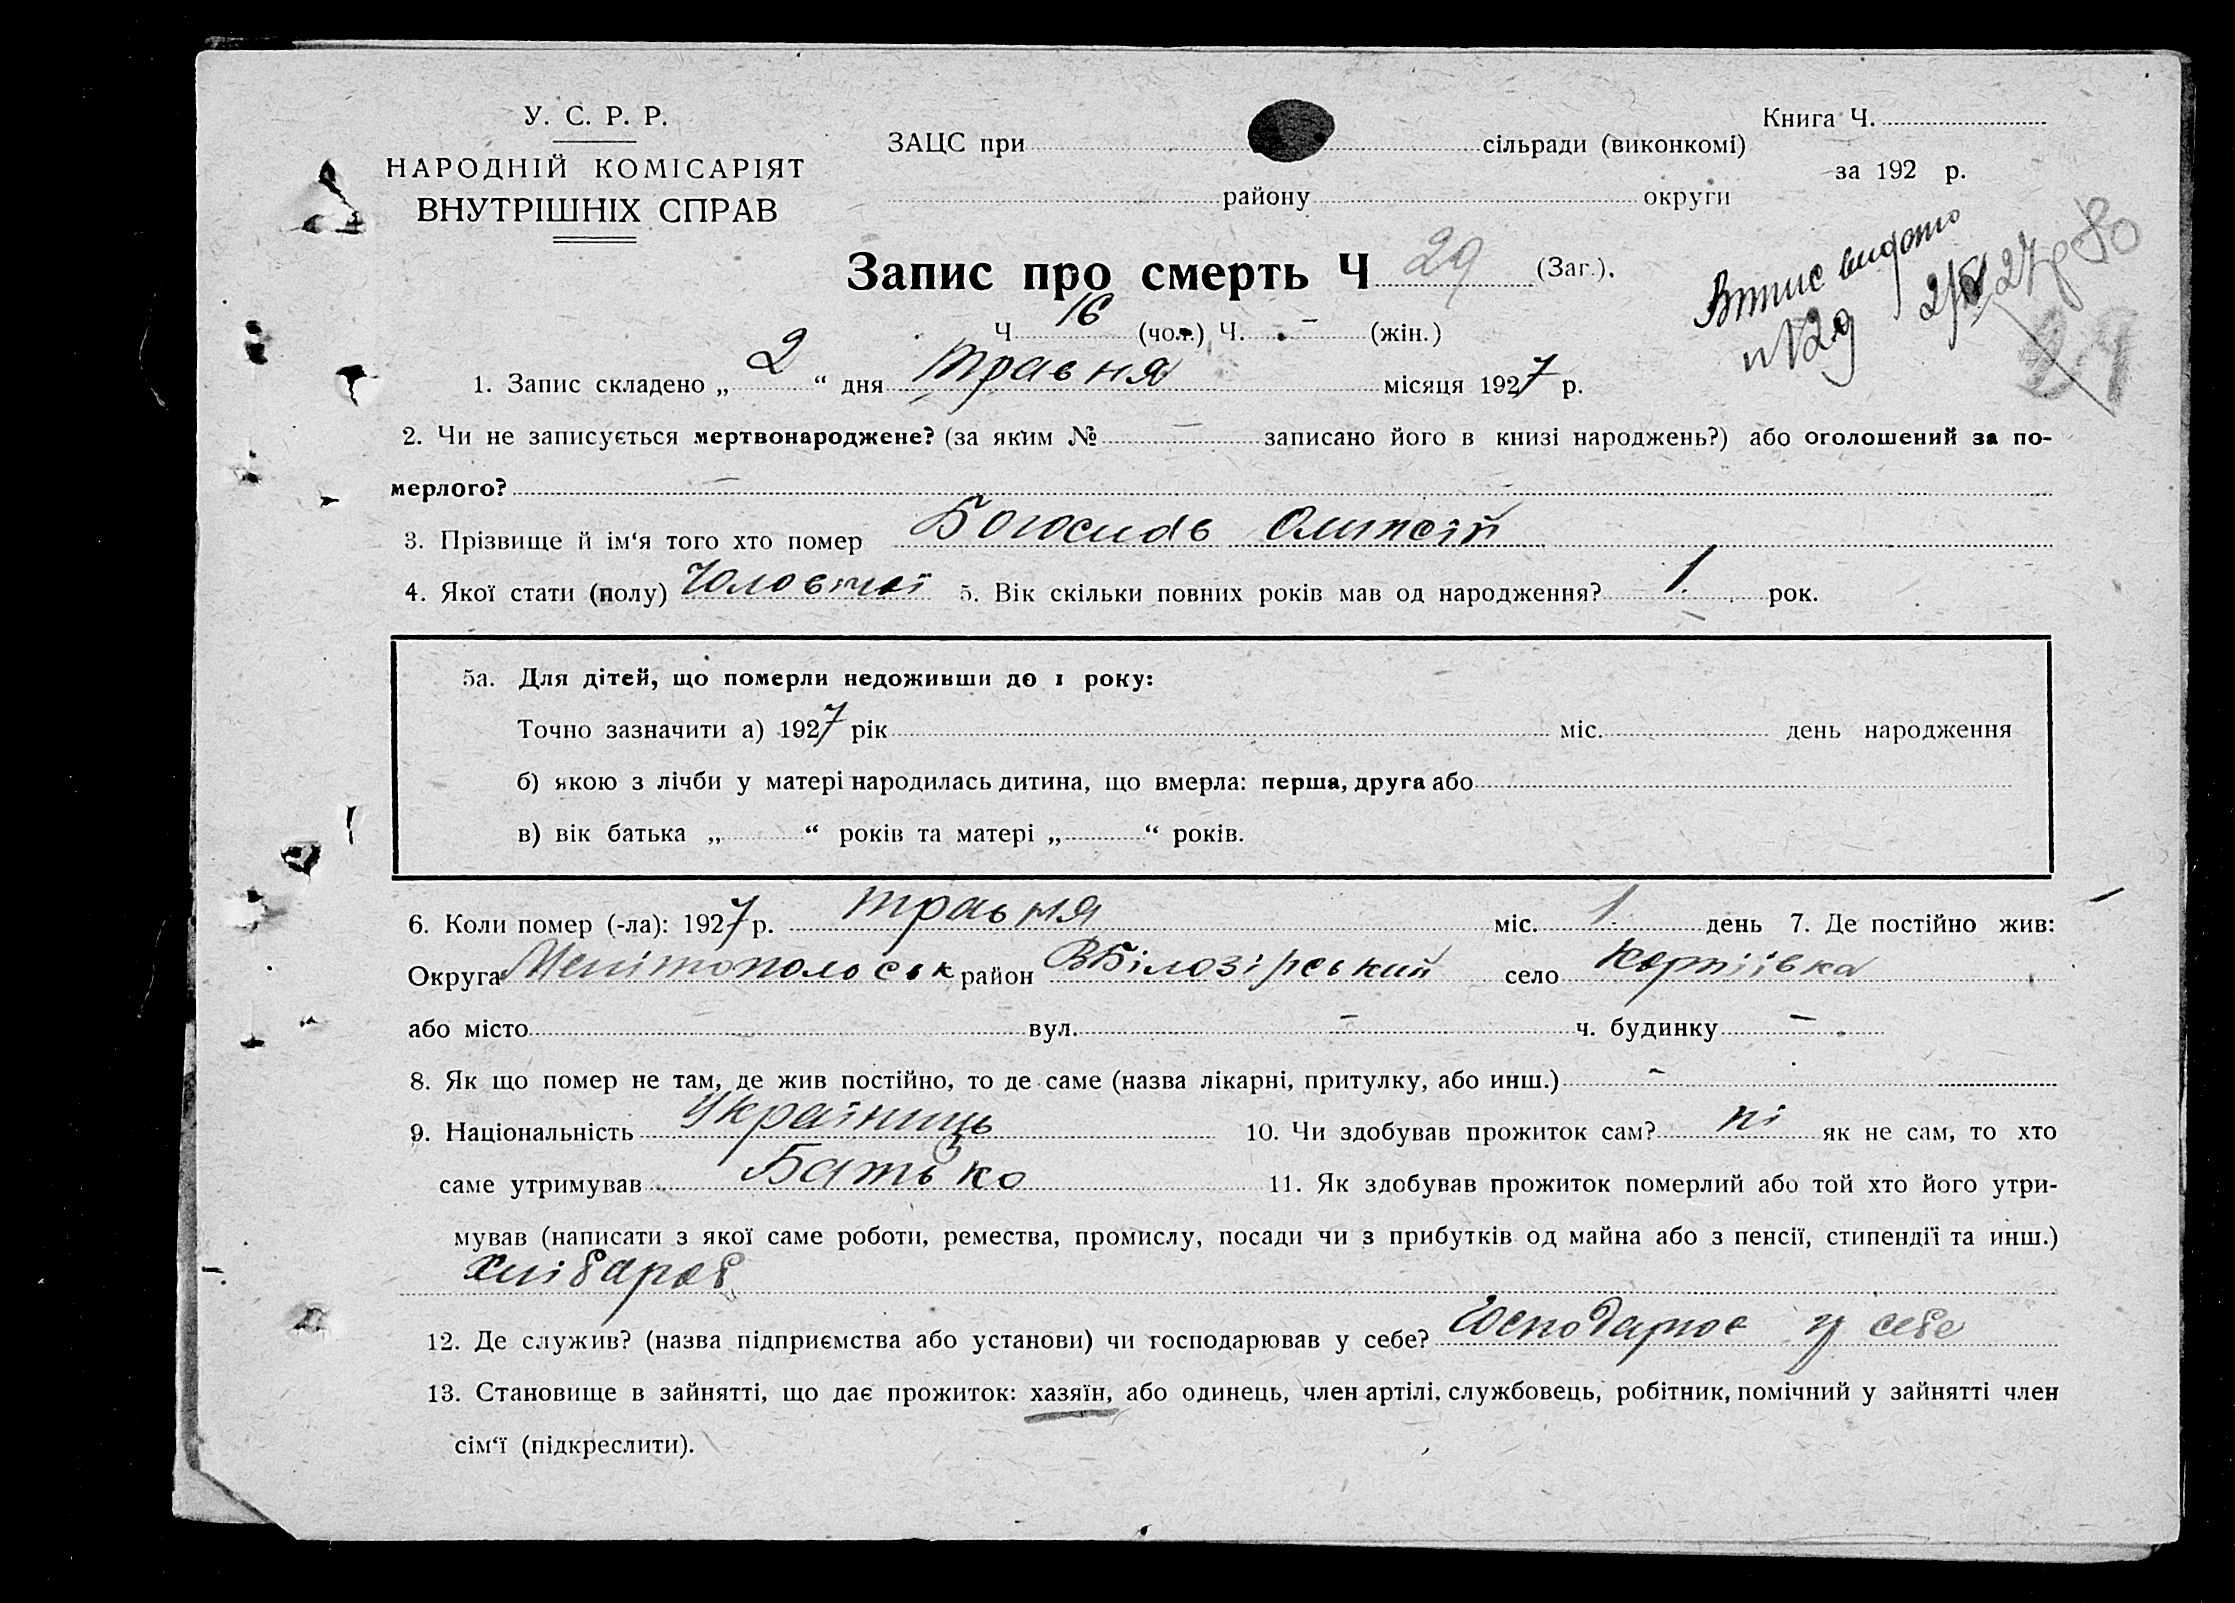 У. С. Р. Р.
НАРОДНІЙ КОМІСАРІЯТ
ВНУТРІШНІХ СПРАВ
ЗАЦС при сільради (виконкомі)
району округи
Книга Ч.
за 192 р.
Запис про смерть Ч 29 (Заг.).
Ч 16 (чол.) Ч. – (жін.)
Втпис видано
2/V 27р
N29
80
29
1. Запис складено „ 2 “ дня травня місяця 1927 р.
2. Чи не записується мертвонароджене? (за яким № – записано його в книзі народжень?) або оголошений за по-
мерлого? –
3. Прізвище й ім‘я того хто помер
4. Якої стати (полу) 5. Вік скільки повних років мав од народження? 1. рок.
5а. Для дітей, що померли недоживши до 1 року:
Точно зазначити а) 1927 рік міс. день народження
б) якою з лічби у матері народилась дитина, що вмерла: перша, друга або
в) вік батька „ “ років та матері „ “ років.
6. Коли помер (-ла): 1927 р. травня міс. 1 день 7. Де постійно жив:
Округа район ВБілозірський село
або місто вул. – ч. будинку –
8. Як що помер не там, де жив постійно, то де саме (назва лікарні, притулку, або инш.) –
9. Національність Україниць 10. Чи здобував прожиток сам? ні як не сам, то хто
саме утримував Батько 11. Як здобував прожиток померлий або той хто його утри-
мував (написати з якої саме роботи, ремества, промислу, посади чи з прибутків од майна або з пенсії, стипендії та инш.)
Хлібароб
12. Де служив? (назва підприємства або установи) чи господарював у себе? Господарює у себе
13. Становище в зайнятті, що дає прожиток: хазяїн, або одинець, член артілі, службовець, робітник, помічний у зайнятті член
сім‘ї (підкреслити).